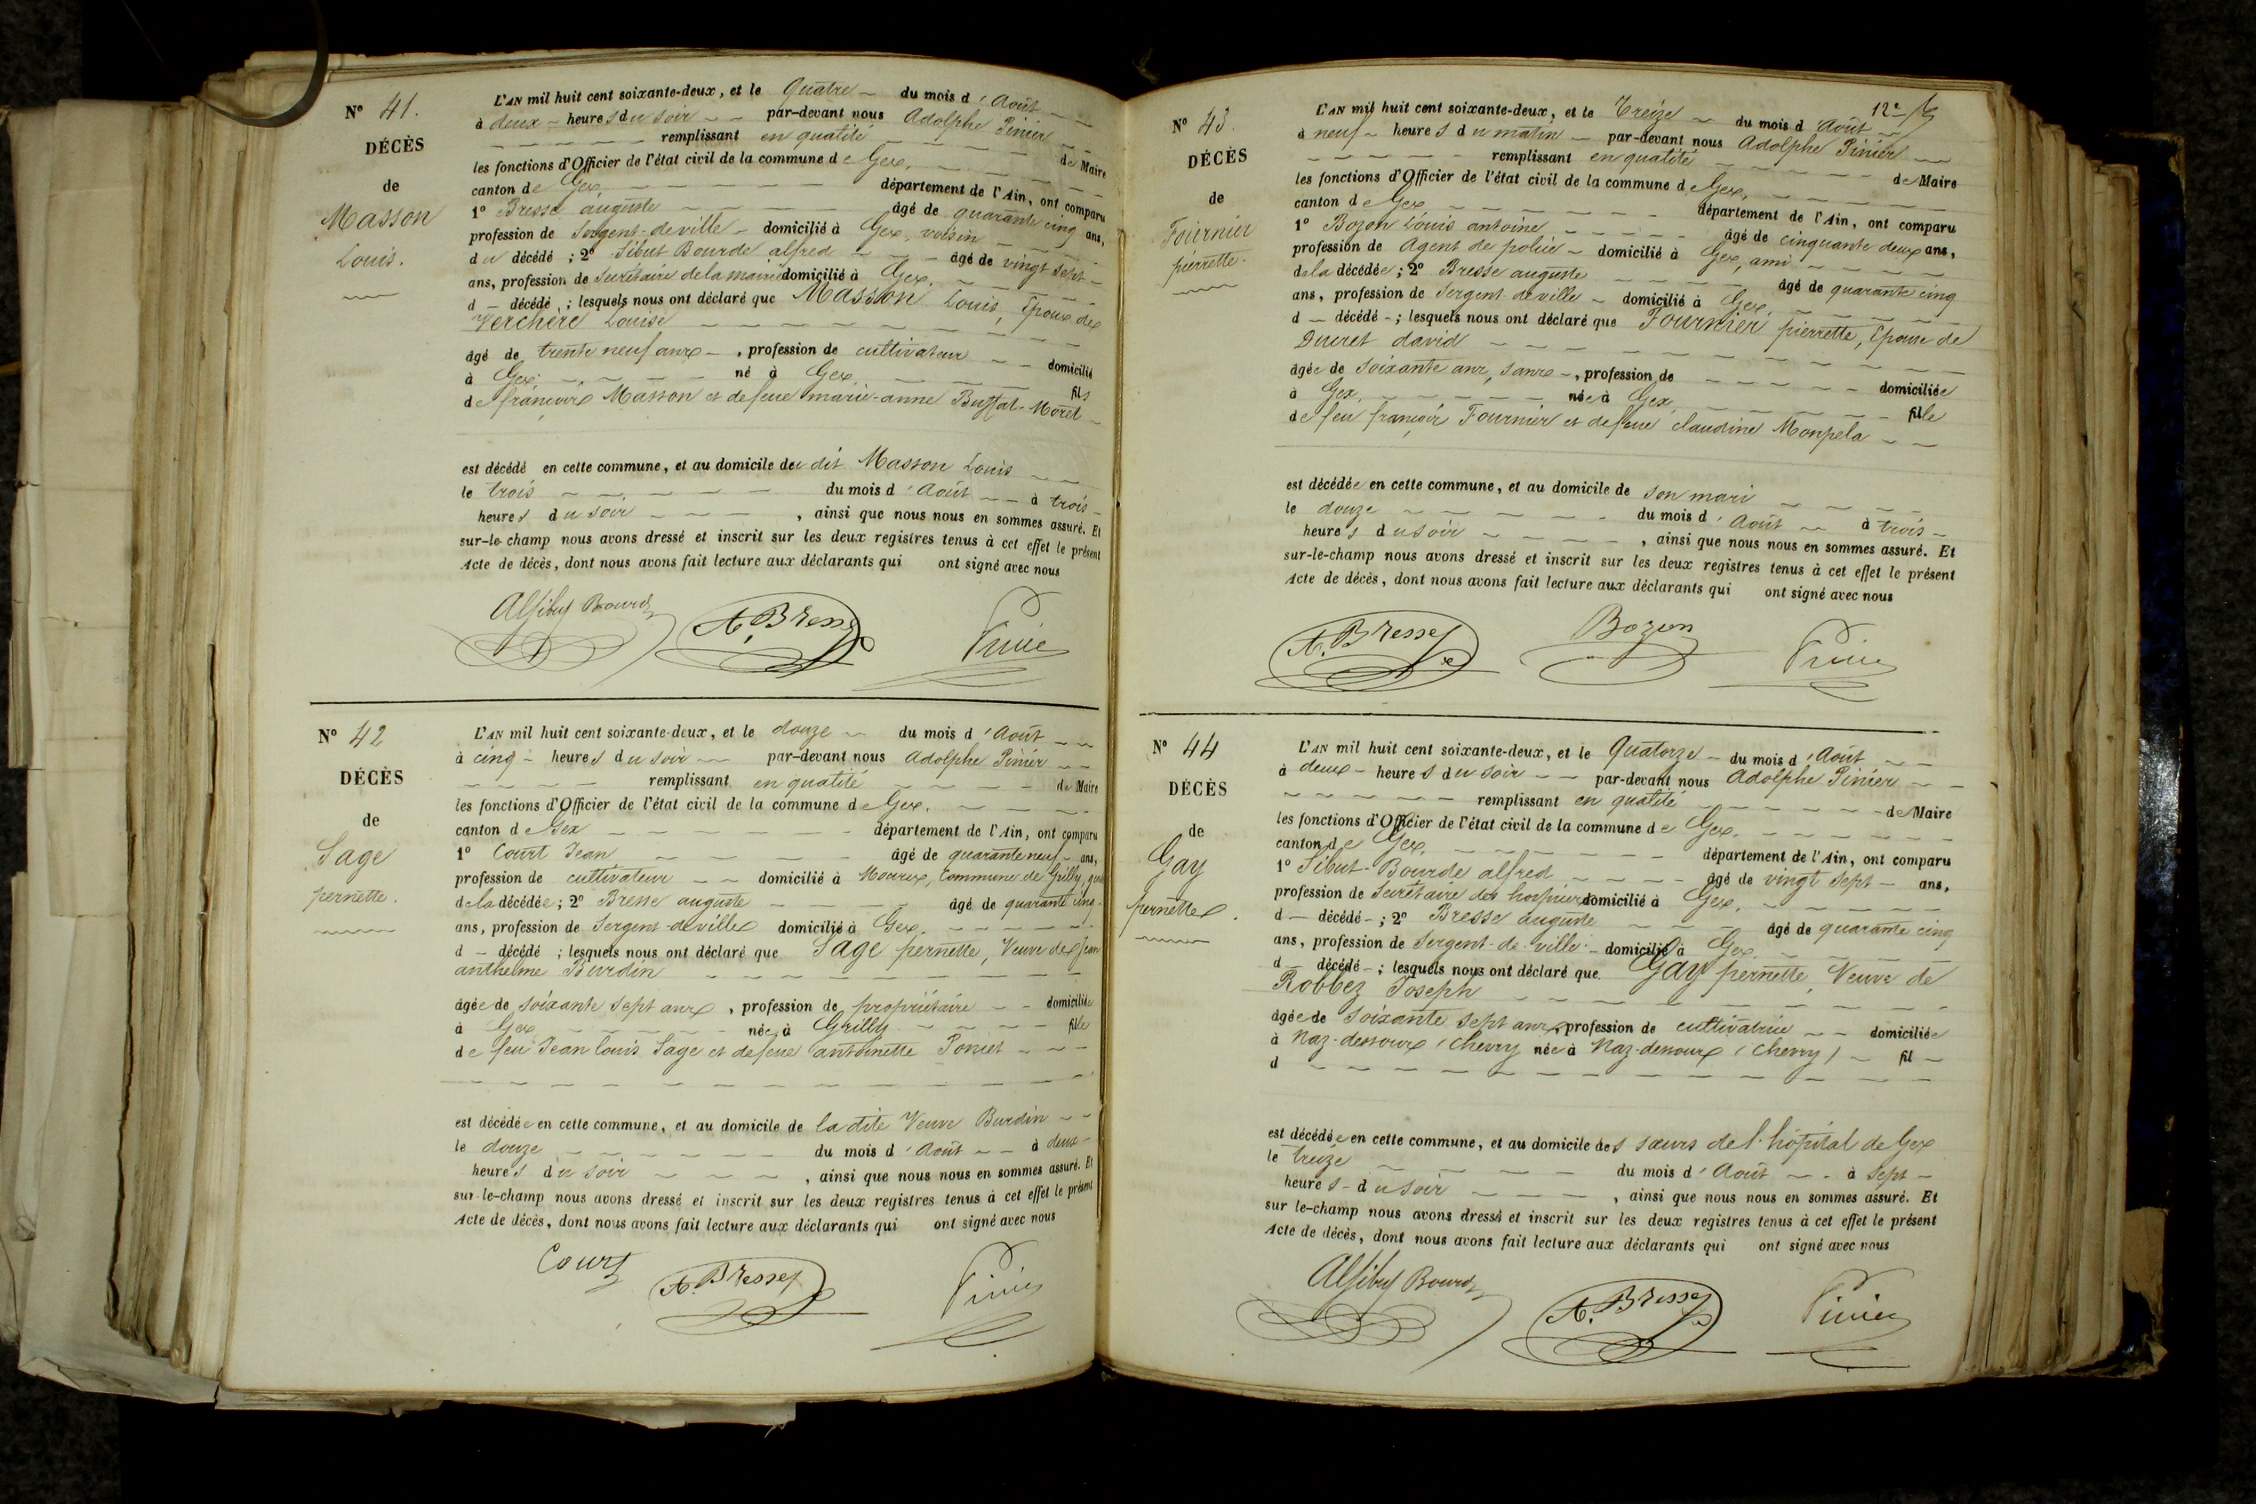 N° 41.
DÉCÈS
de
Masson
Louis.
L'AN mil huit cent soixante-deux, et le Quatre du mois d'Août
à deux heures du soir par-devant nous Adolphe Pinier
remplissant en qualité de Maire
les fonctions d'Officier de l'état civil de la commune de Gex,
canton de Gex, département de l'Ain, ont comparu
1° Bresse auguste âgé de quarante cinq ans,
profession de Sergent-de ville domicilié à Gex, voisin
du décédé ; 2° Sibut Bourde alfred âgé de vingt sept
ans, profession de Secrétaire de la mairie domicilié à Gex,
d décédé ; lesquels nous ont déclaré que Masson Louis, Epoux de
Verchère Louise
âgé de trente neuf ans, profession de cultivateur domicilié
à Gex né à Gex, fils
de françois Masson et de feue marie-anne Buffat-Morel
est décédé en cette commune, et au domicile du dit Masson Louis
le trois du mois d'Août à trois
heures du soir, ainsi que nous nous en sommes assuré. Et
sur-le-champ nous avons dressé et inscrit sur les deux registres tenus à cet effet le présent
Acte de décès, dont nous avons fait lecture aux déclarants qui ont signé avec nous
A. Bresse Pinier
N° 42
DÉCÈS
de
Sage
pernette.
L'AN mil huit cent soixante-deux, et le douze du mois d'Août
à cinq heures du soir par-devant nous Adolphe Pinier
remplissant en qualité de Maire
les fonctions d'Officier de l'état civil de la commune de Gex.
canton de Gex département de l'Ain, ont comparu
1° Court Jean âgé de quarante neuf ans,
profession de cultivateur domicilié à Mourex, commune de Grilly,
de la décédée ; 2° Bresse auguste âgé de quarante cinq
ans, profession de Sergent-de ville domicilié à Gex.
d décédé ; lesquels nous ont déclaré que Sage pernette, Veuve de Jean
anthelme Burdin
âgée de soixante sept ans, profession de propriétaire domiciliée
à Gex née à Grilly fille
de feu Jean Louis Sage et de feue antoinette Poncet
est décédée en cette commune, et au domicile de la dite Veuve Burdin
le douze du mois d'Août à deux
heures du soir, ainsi que nous nous en sommes assuré. Et
sur-le-champ nous avons dressé et inscrit sur les deux registres tenus à cet effet le présent
Acte de décès, dont nous avons fait lecture aux déclarants qui ont signé avec nous
Court A. Bresse Pinier
12e
N° 43.
DÉCÈS
de
Fournier
pierrette.
L'AN mil huit cent soixante-deux, et le Treize du mois d'Août
à neuf heures du matin par-devant nous Adolphe Pinier
remplissant en qualité de Maire
les fonctions d'Officier de l'état civil de la commune de Gex,
canton de Gex département de l'Ain, ont comparu
1° Bozon Louis antoine âgé de cinquante deux ans,
profession de Agent de police domicilié à Gex, ami
de la décédée ; 2° Bresse auguste âgé de quarante cinq
ans, profession de Sergent-de ville domicilié à Gex,
d décédé ; lesquels nous ont déclaré que Fournier pierrette, Epouse de
Ducret david
âgée de soixante ans, sans, profession de domiciliée
à Gex, née à Gex, fille
de feu françois Fournier et de feue claudine Monpela
est décédée en cette commune, et au domicile de son mari
le douze du mois d'Août à trois
heures du soir, ainsi que nous nous en sommes assuré. Et
sur-le-champ nous avons dressé et inscrit sur les deux registres tenus à cet effet le présent
Acte de décès, dont nous avons fait lecture aux déclarants qui ont signé avec nous
A. Bresse Bozon Pinier
N° 44
DÉCÈS
de
Gay
pernette.
L'AN mil huit cent soixante-deux, et le Quatorze du mois d'Août
à deux heures du soir par-devant nous Adolphe Pinier
remplissant en qualité de Maire
les fonctions d'Officier de l'état civil de la commune de Gex.
canton de Gex, département de l'Ain, ont comparu
1° Sibut-Bourde alfred âgé de vingt sept ans,
profession de Secrétaire des hospices domicilié à Gex,
d décédé ; 2° Bresse auguste âgé de quarante cinq
ans, profession de Sergent-de-ville domicilié à Gex
d décédé ; lesquels nous ont déclaré que Gay pernette, Veuve de
Robbez Joseph
âgée de soixante sept ans, profession de cultivatrice domiciliée
à Naz-dessoux (Chevry née à Naz-dessoux (Chevry) fil
d
est décédée en cette commune, et au domicile des sœurs de l'hôpital de Gex
le treize du mois d'Août à sept
heures du soir, ainsi que nous nous en sommes assuré. Et
sur le-champ nous avons dressé et inscrit sur les deux registres tenus à cet effet le présent
Acte de décès, dont nous avons fait lecture aux déclarants qui ont signé avec nous
A. Bresse Pinier